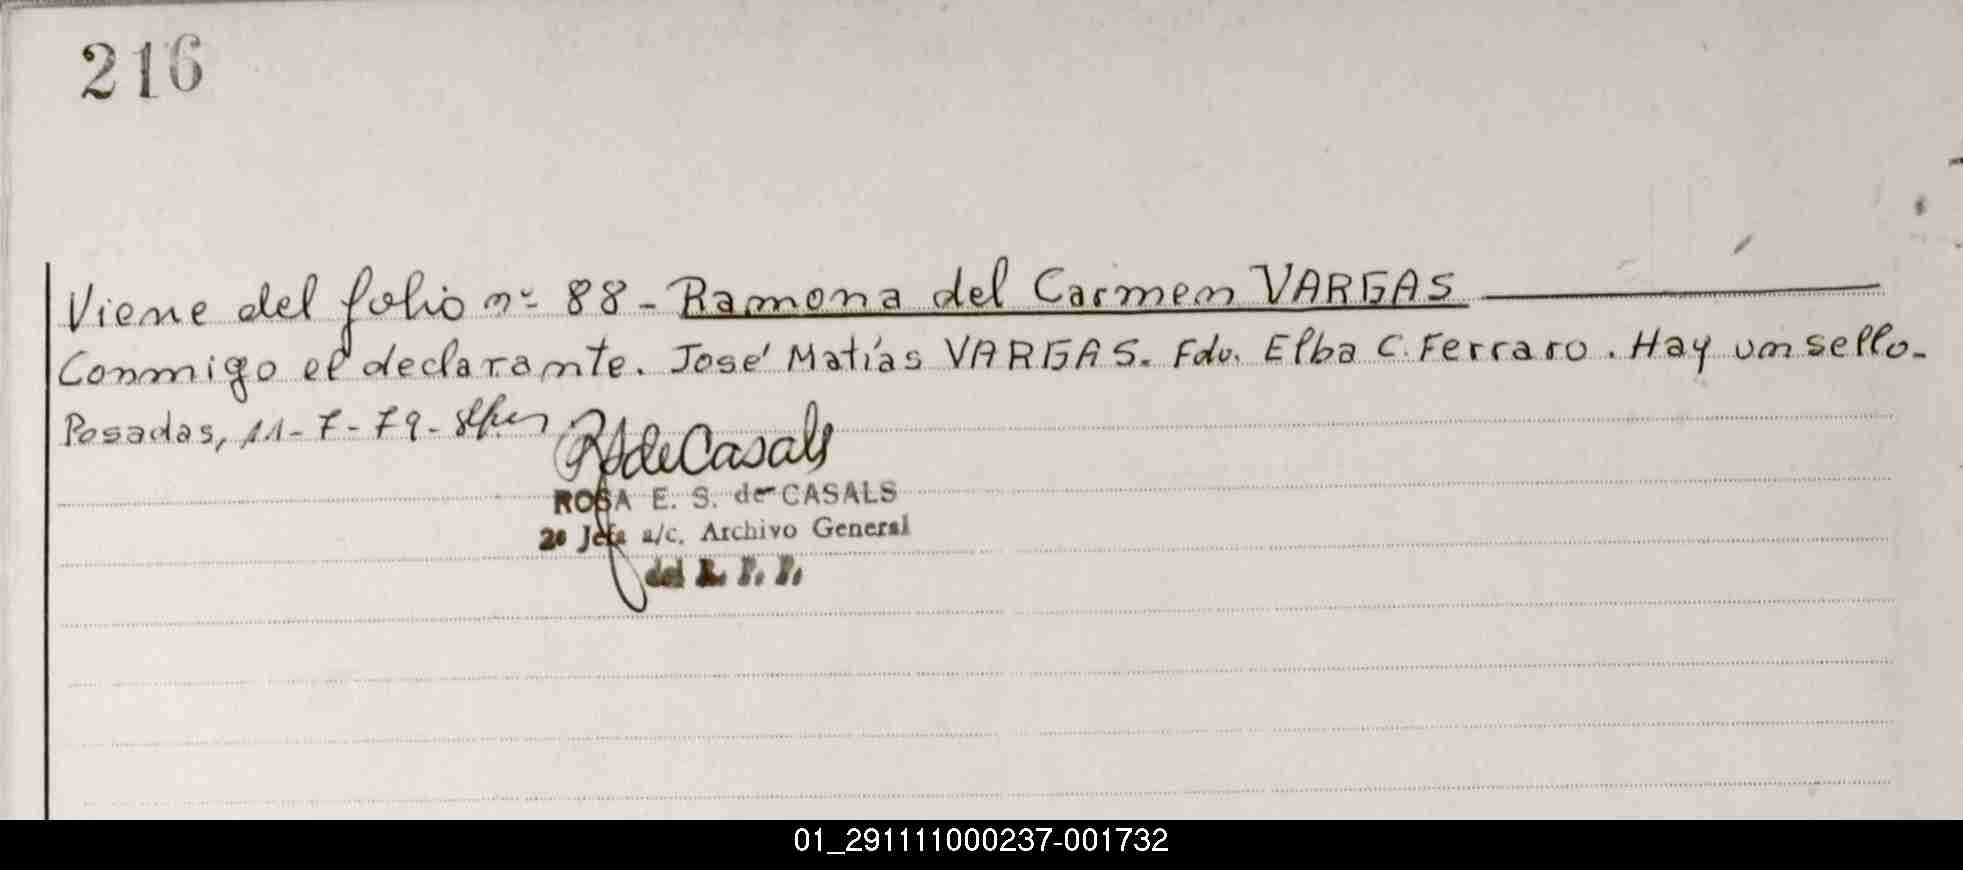 216
Viene del folio nº 88 - Ramona del Carmen VARGAS
Conmigo el declarante. José Matías VARGAS. Fdo. Elba C. Ferraro. Hay un sello.
Posadas, 11-7-79-
RSdeCasals
ROSA E. S. de CASALS
2º Jefa a/c. Archivo General
del R. P. P.
01_291111000237-001732